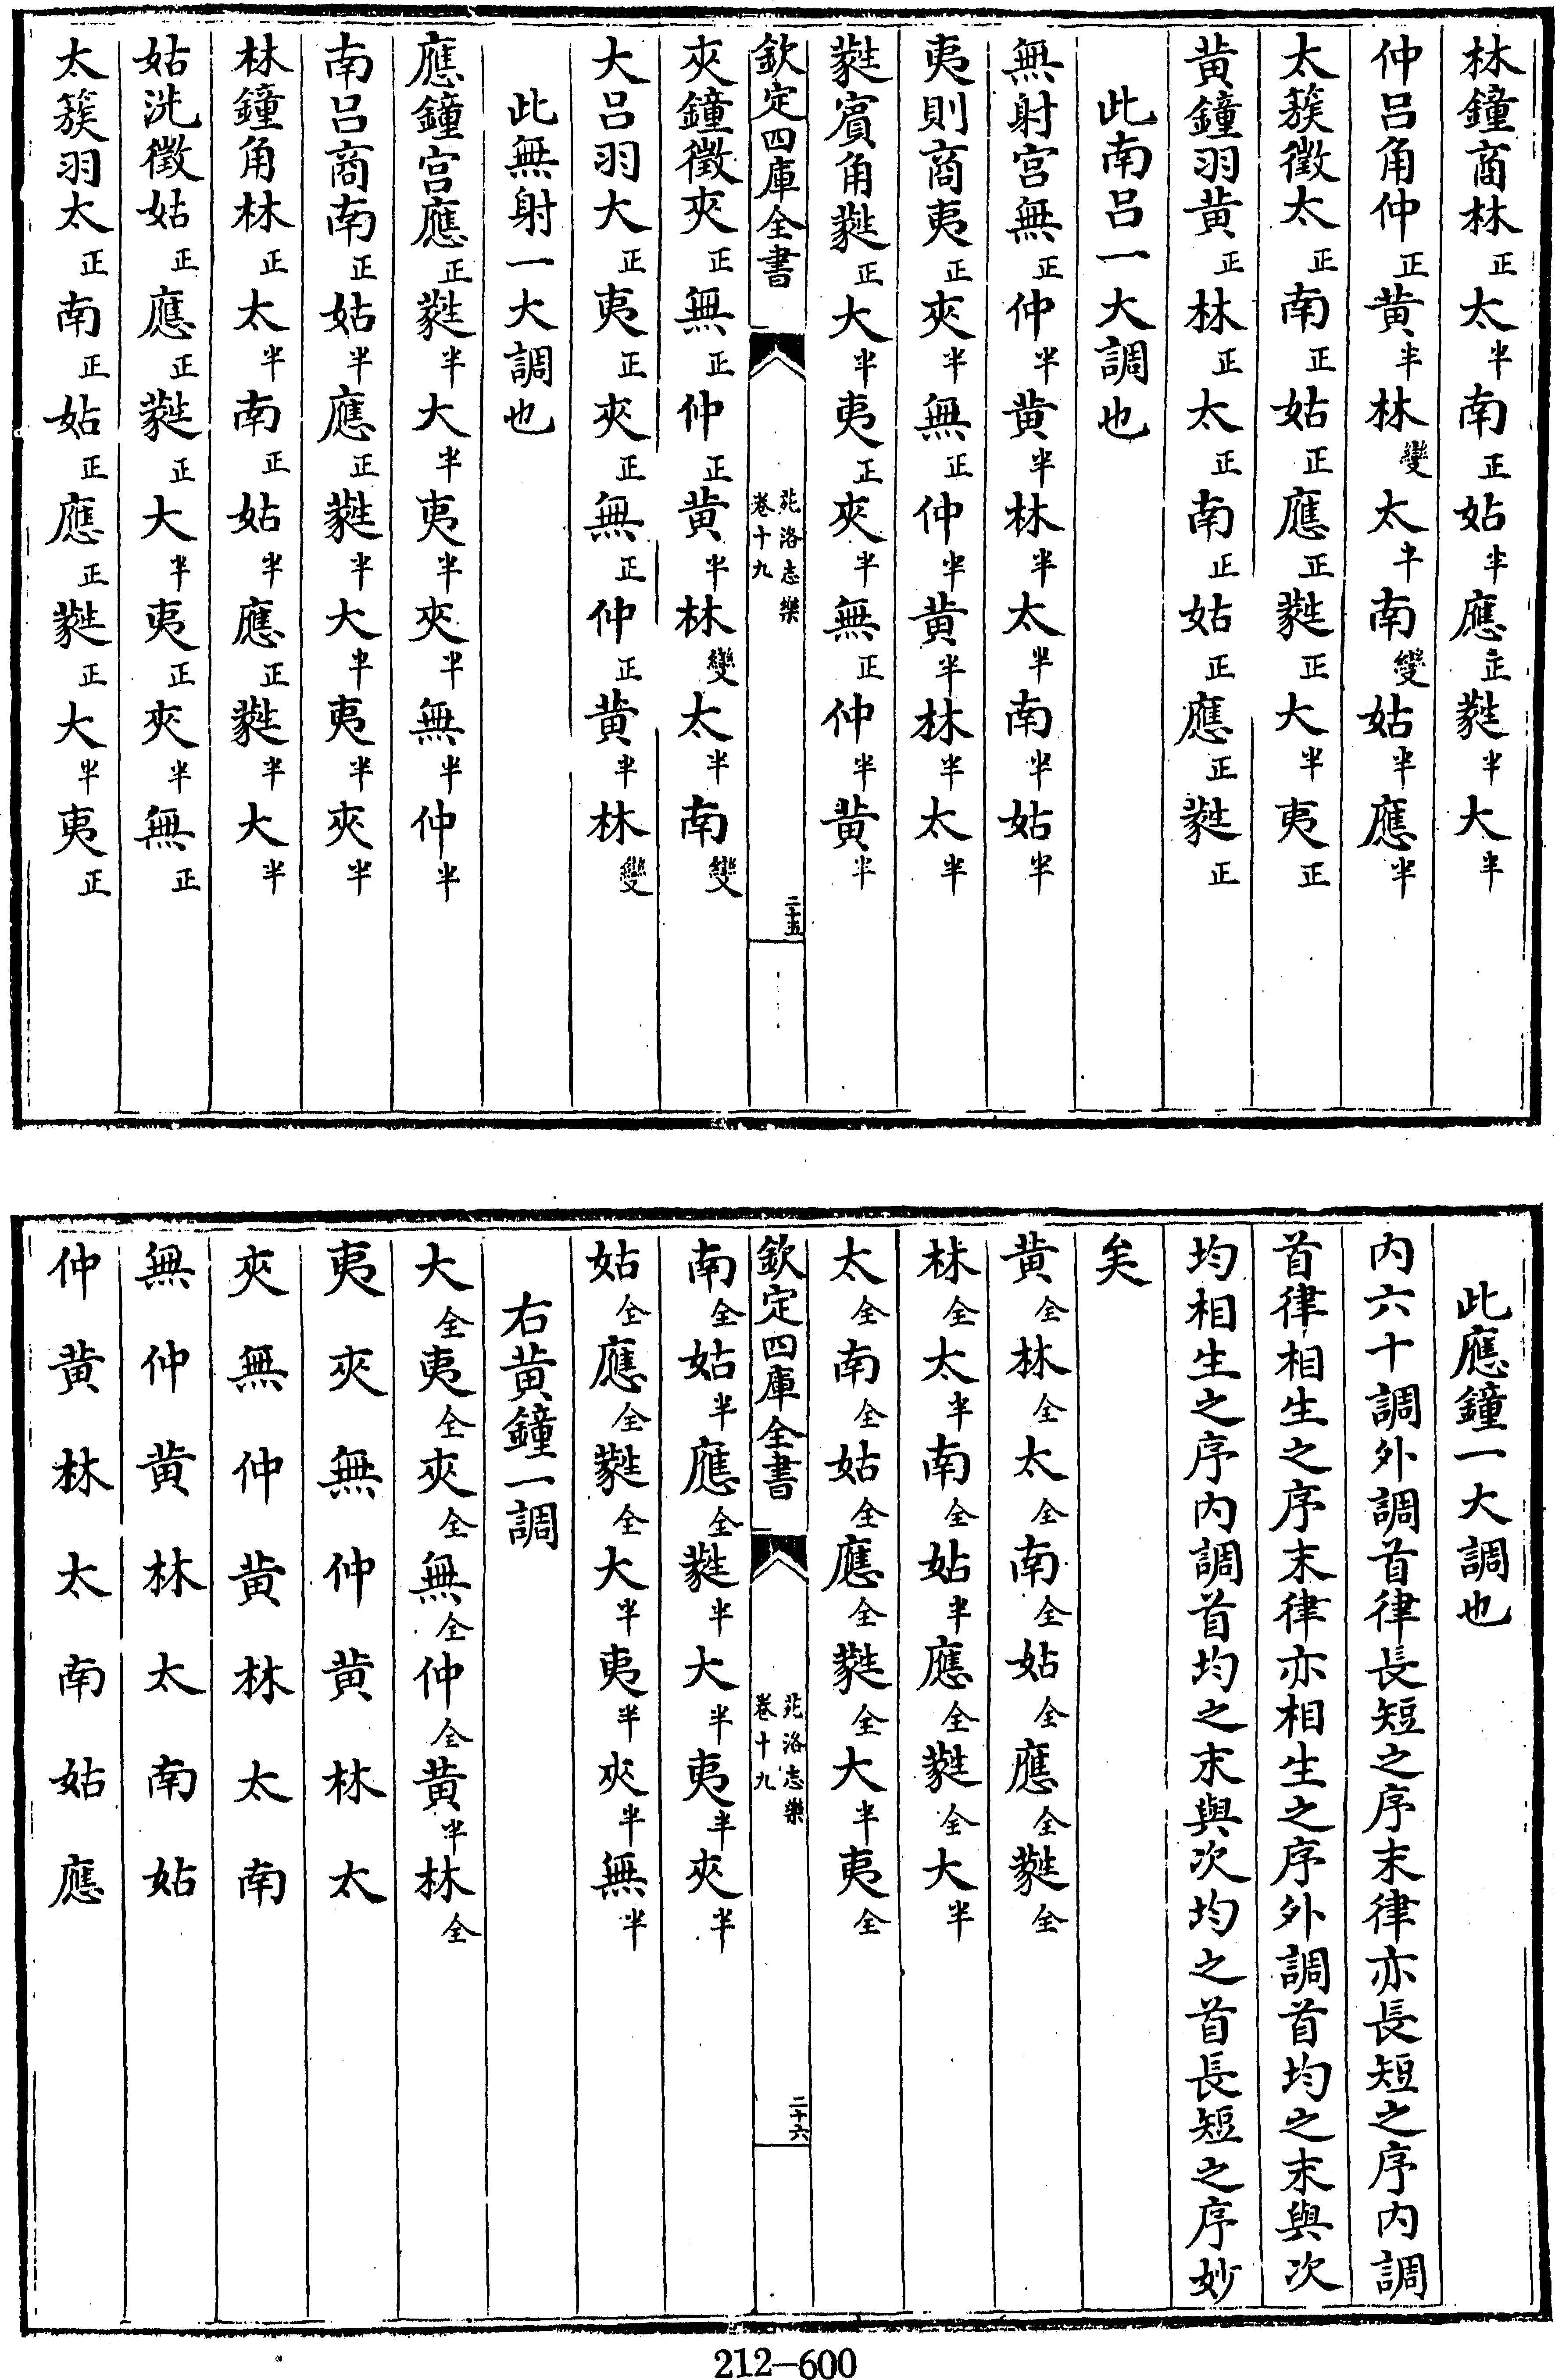 林鐘商林正太半南正姑半應正蕤半大半
仲呂角仲正黄半林變太半南變姑半應半
太簇徵太正南正姑正應正蕤正大半夷正
黄鐘羽黄正林正太正南正姑正應正蕤正
此南呂一大調也
無射宫無正仲半黄半林半太半南半姑半
夷則商夷正夾半無正仲半黄半林半太半
蕤賔角蕤正大半夷正夾半無正仲半黄半
欽定四庫全書
苑洛志樂
卷十九
二十五
夾鐘徵夾正無正仲正黄半林變太半南變
大呂羽大正夷正夾正無正仲正黄半林變
此無射一大調也
應鐘宫應正蕤半大半夷半夾半無半仲半
南呂商南正姑半應正蕤半大半夷半夾半
林鐘角林正太半南正姑半應正蕤半大半
姑洗徵姑正應正蕤正大半夷正夾半無正
太簇羽太正南正姑正應正蕤正大半夷正
此應鐘一大調也
内六十調外調首律長短之序末律亦長短之序内調
首律相生之序末律亦相生之序外調首均之末與次
均相生之序内調首均之末與次均之首長短之序妙
矣
黄全林全太全南全姑全應全蕤全
林全太半南全姑半應全蕤全大半
太全南全姑全應全蕤全大半夷全
欽定四庫全書
苑洛志樂
卷十九
二十六
南全姑半應全蕤半大半夷半夾半
姑全應全蕤全大半夷半夾半無半
右黄鐘一調
大全夷全夾全無全仲全黄半林全
夷夾無仲黄林太
夾無仲黄林太南
無仲黄林太南姑
仲黄林太南姑應
212-600